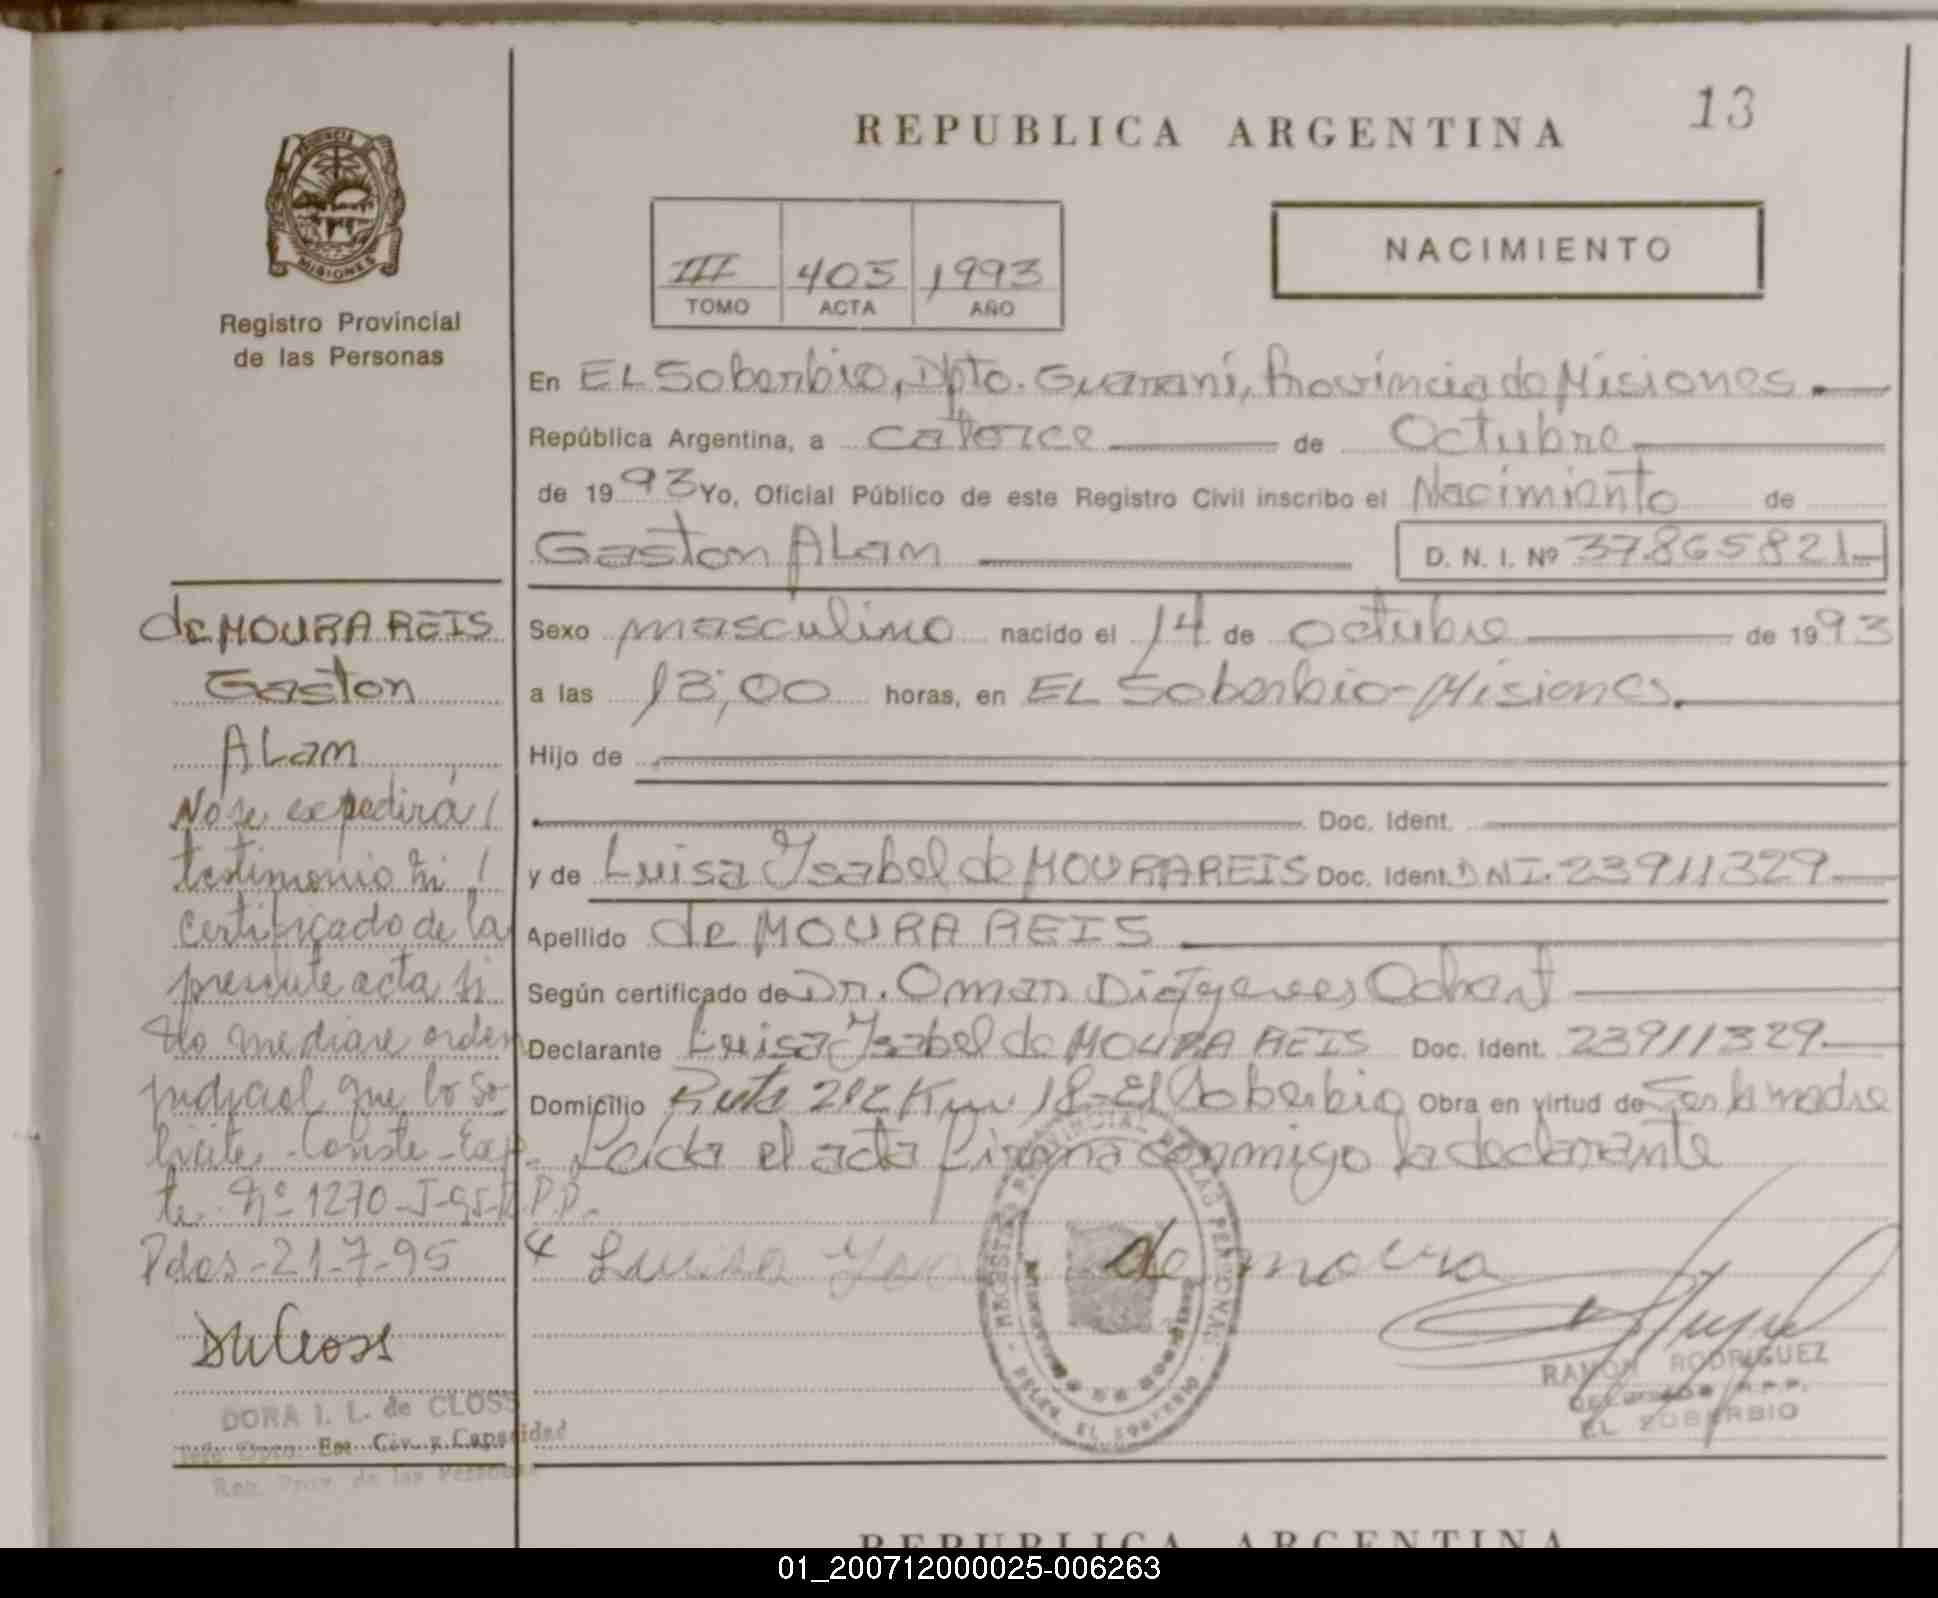 13
REPUBLICA ARGENTINA
PROVINCIA DE MISIONES
Registro Provincial
de las Personas
III 403 1993
TOMO ACTA AÑO
NACIMIENTO
En EL Soberbio, Dpto. Guaraní, Provincia de Misiones.
República Argentina, a catorce de Octubre
de 1993 Yo, Oficial Público de este Registro Civil inscribo el Nacimiento de
Gaston ALan D. N. I. Nº 37.865821
Sexo masculino nacido el 14 de octubre de 1993
a las 13,00 horas, en EL Soberbio-Misiones.
Hijo de
Doc. Ident.
y de Luisa Ysabel de MOURA REIS Doc. Ident. DNI. 23911329
Apellido de MOURA REIS
Según certificado de Dr. Omar
Declarante Luisa Ysabel de MOURA REIS Doc. Ident. 23911329
Domicilio Ruta 212 Km 18-El Soberbio Obra en virtud de Ser la madre
Leida el acta firma conmigo la declarante
Luisa de moura
RAMON RODRIGUEZ
EL SOBERBIO
de MOURA REIS
Gaston
ALan
No se expedirá
testimonio ni
certificado de la
presente acta si
No mediare orden
judicial que lo so
licite. Conste-Exp
te. Nº 1270-J-95-R.P.P.
Pdas-21-7-95
DORA I. L. de CLOSS
Jefe Dpto. Est. Civ. y Capacidad
Reg. Prov. de las Personas
REPUBLICA ARGENTINA
01_200712000025-006263